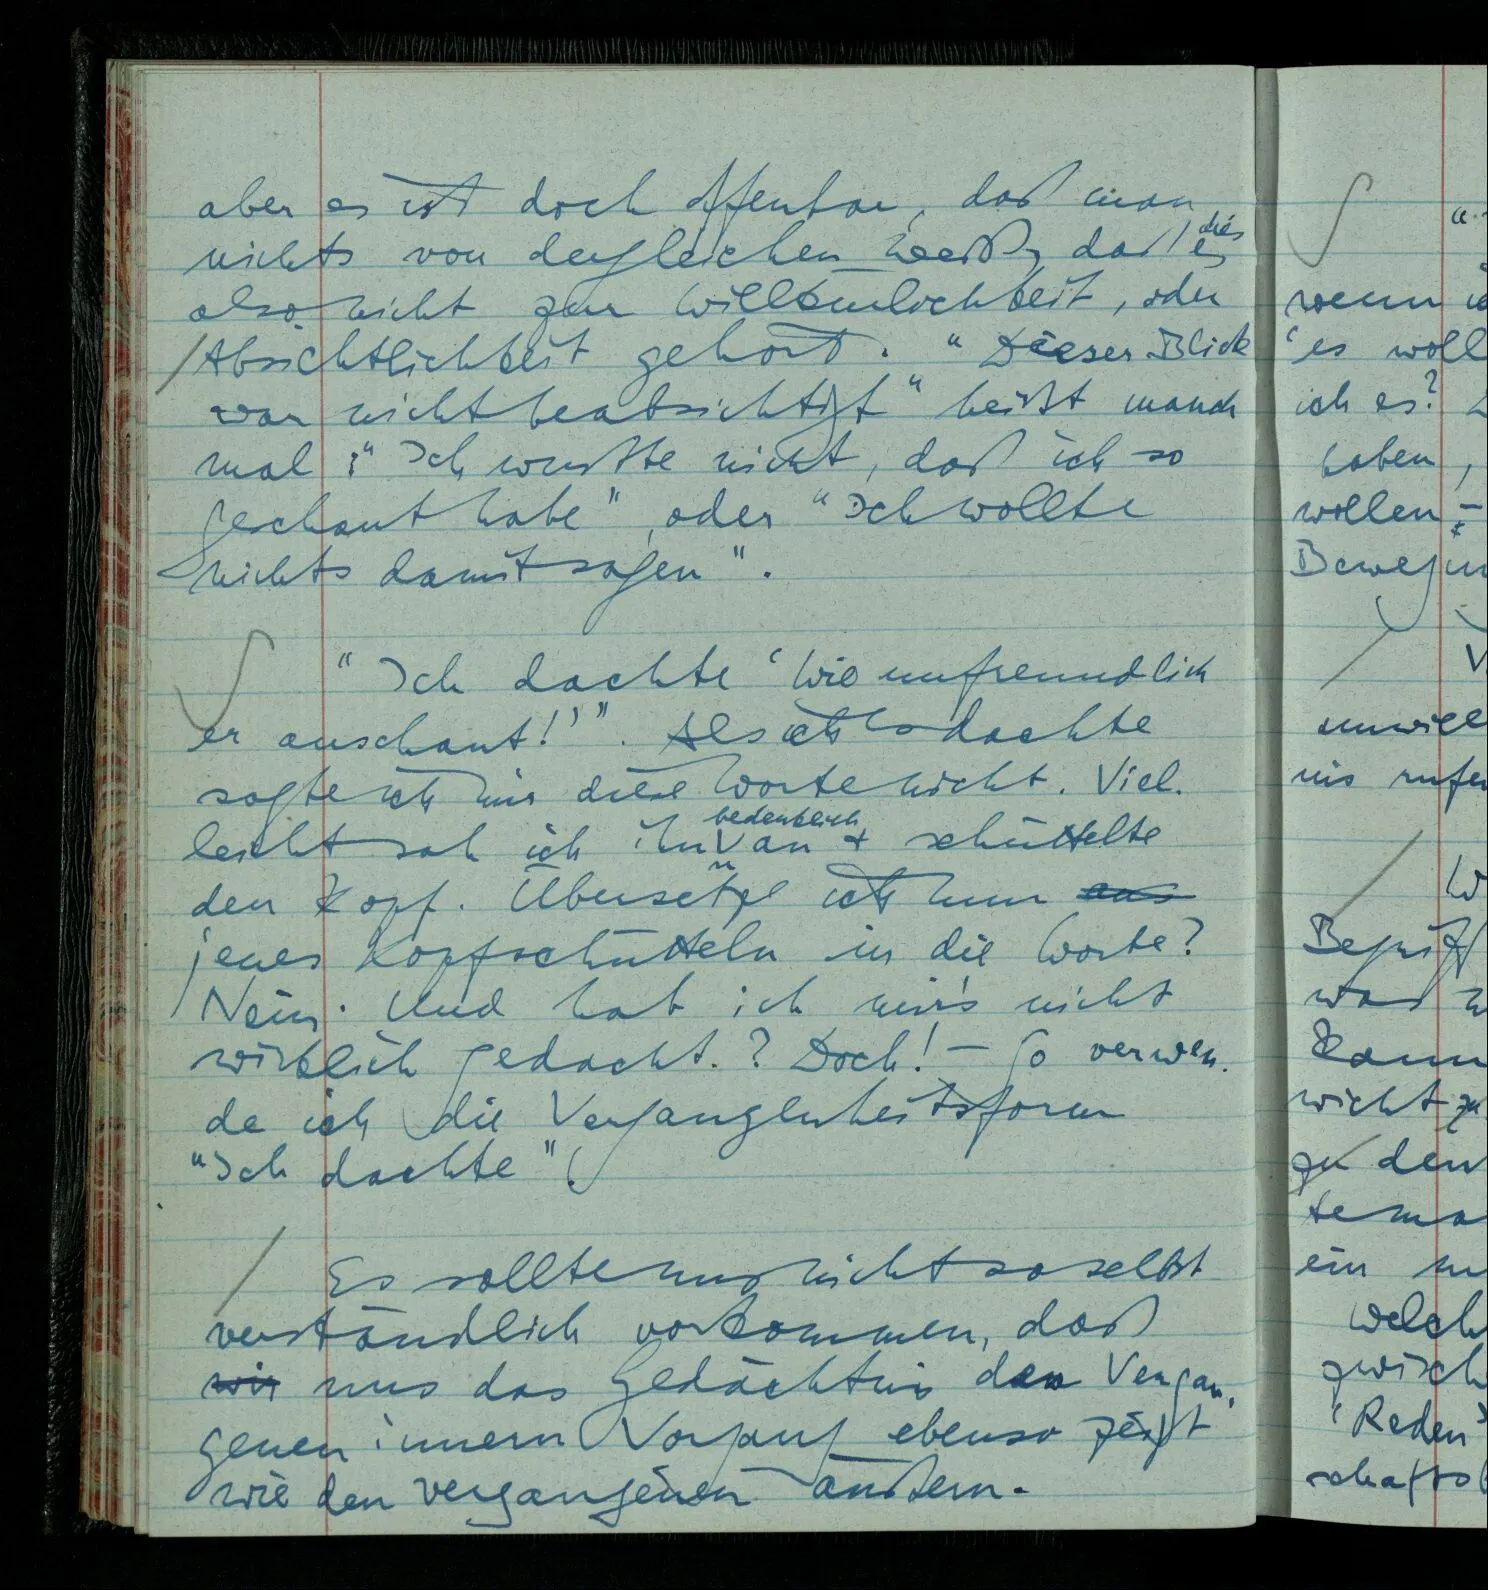 aber es ist doch offenbar, daß man
nichts von dergleichen weiß, daß es dies
also nicht zur Willkürlichkeit, oder
Absichtlichkeit gehört. “Dieser Blick
war nicht beabsichtigt” heißt manch
mal: “Ich wußte nicht, daß ich so
geschaut habe”, oder “Ich wollte
nichts damit sagen”.
“Ich dachte ‘Wie unfreundlich
er anschaut!’”. Als ich so dachte
sagte ich mir diese Worte nicht. Viel-
bedenklich
leicht sah ich ihn an + schüttelte
den Kopf. Übersetze ich nun
jenes Kopfschütteln in die Worte?
Nein. Und hab ich mir's nicht
wirklich gedacht.? Doch! – So verwen-
de ich die Vergangenheitsform
“Ich dachte”.
Es sollte uns nicht so selbst
verständlich vorkommen, daß
wir uns das Gedächtnis den Vergan-
genen innern Vorgang ebenso zeigt
wie den vergangenen äußern.
“
wenn
‘es woll
ich es?
haben,
wollen –
Bewegun
V
unwill
uns rufen
W
Begriff
was
kann
nicht zu
zu den
ein
welch
zwisch
‘Reden’
schafts